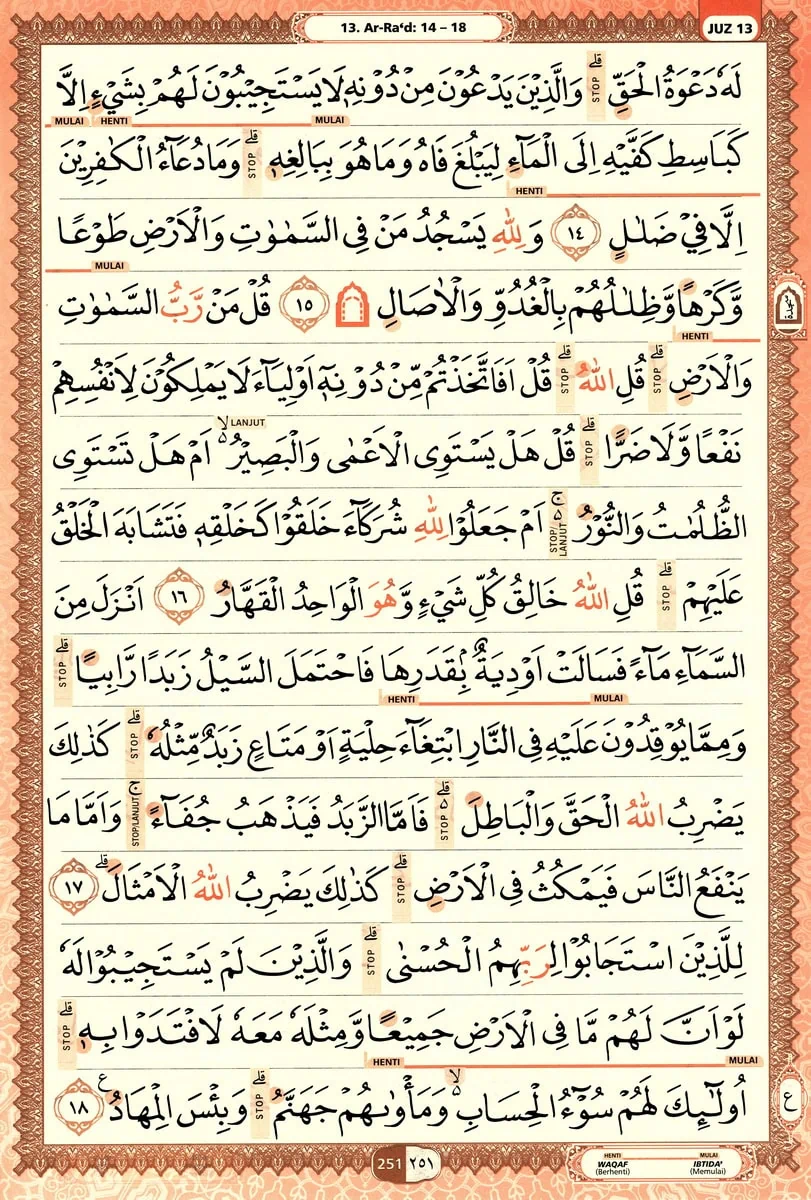 13. Ar-Ra‘d: 14 – 18
JUZ 13
لَهٗ دَعْوَةُ الْحَقِّۗ وَالَّذِيْنَ يَدْعُوْنَ مِنْ دُوْنِهٖ لَا يَسْتَجِيْبُوْنَ لَهُمْ بِشَيْءٍ اِلَّا
STOP
MULAI HENTI MULAI
كَبَاسِطِ كَفَّيْهِ اِلَى الْمَاۤءِ لِيَبْلُغَ فَاهُ وَمَا هُوَ بِبَالِغِهٖۗ وَمَا دُعَاۤءُ الْكٰفِرِيْنَ
STOP
HENTI
اِلَّا فِيْ ضَلٰلٍ ١٤ وَلِلّٰهِ يَسْجُدُ مَنْ فِى السَّمٰوٰتِ وَالْاَرْضِ طَوْعًا
MULAI
وَّكَرْهًا وَّظِلٰلُهُمْ بِالْغُدُوِّ وَالْاٰصَالِ ۩ ١٥ قُلْ مَنْ رَّبُّ السَّمٰوٰتِ
سجدة
HENTI
وَالْاَرْضِۗ قُلِ اللّٰهُ ۗ قُلْ اَفَاتَّخَذْتُمْ مِّنْ دُوْنِهٖٓ اَوْلِيَاۤءَ لَا يَمْلِكُوْنَ لِاَنْفُسِهِمْ
STOP STOP
LANJUT
نَفْعًا وَّلَا ضَرًّاۗ قُلْ هَلْ يَسْتَوِى الْاَعْمٰى وَالْبَصِيْرُ ەۙ اَمْ هَلْ تَسْتَوِى
STOP
الظُّلُمٰتُ وَالنُّوْرُ ەۚ اَمْ جَعَلُوْا لِلّٰهِ شُرَكَاۤءَ خَلَقُوْا كَخَلْقِهٖ فَتَشَابَهَ الْخَلْقُ
STOP/LANJUT
عَلَيْهِمْۗ قُلِ اللّٰهُ خَالِقُ كُلِّ شَيْءٍ وَّهُوَ الْوَاحِدُ الْقَهَّارُ ١٦ اَنْزَلَ مِنَ
STOP
السَّمَاۤءِ مَاۤءً فَسَالَتْ اَوْدِيَةٌ ۢ بِقَدَرِهَا فَاحْتَمَلَ السَّيْلُ زَبَدًا رَّابِيًاۗ
STOP
HENTI MULAI
وَمِمَّا يُوْقِدُوْنَ عَلَيْهِ فِى النَّارِ ابْتِغَاۤءَ حِلْيَةٍ اَوْ مَتَاعٍ زَبَدٌ مِّثْلُهٗ ۗ كَذٰلِكَ
STOP
يَضْرِبُ اللّٰهُ الْحَقَّ وَالْبَاطِلَ ەۗ فَاَمَّا الزَّبَدُ فَيَذْهَبُ جُفَاۤءًۚ وَاَمَّا مَا
STOP STOP/LANJUT
يَنْفَعُ النَّاسَ فَيَمْكُثُ فِى الْاَرْضِۗ كَذٰلِكَ يَضْرِبُ اللّٰهُ الْاَمْثَالَۗ ١٧
STOP
لِلَّذِيْنَ اسْتَجَابُوْا لِرَبِّهِمُ الْحُسْنٰىۗ وَالَّذِيْنَ لَمْ يَسْتَجِيْبُوْا لَهٗ
STOP
لَوْ اَنَّ لَهُمْ مَّا فِى الْاَرْضِ جَمِيْعًا وَّمِثْلَهٗ مَعَهٗ لَافْتَدَوْا بِهٖ ۗ
STOP
HENTI MULAI
اُولٰۤىِٕكَ لَهُمْ سُوْۤءُ الْحِسَابِ ەۙ وَمَأْوٰىهُمْ جَهَنَّمُ ۗ وَبِئْسَ الْمِهَادُ ࣖ ١٨
STOP
ع
251 ٢٥١
HENTI MULAI
WAQAF IBTIDA'
(Berhenti) (Memulai)